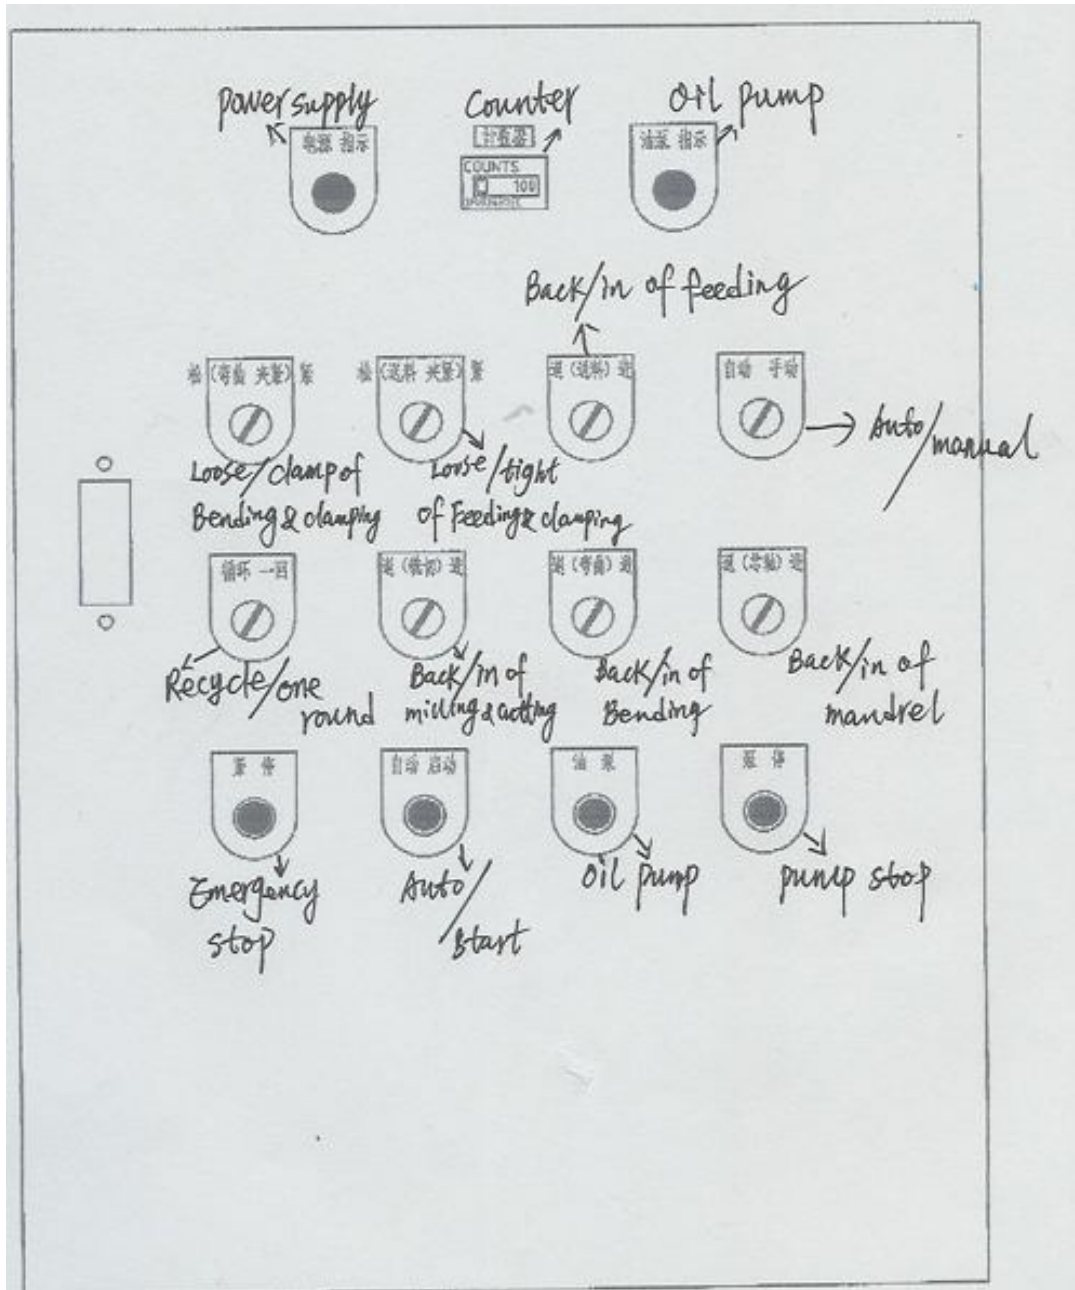 Power supply
Counter
Oil pump
电源 指示
计数器
油泵 指示
COUNTS
100
Back/in of feeding
松 (弯曲 夹紧) 紧
松 (送料 夹紧) 紧
退 (送料) 进
自动 手动
Auto/manual
Loose/clamp of
Bending & clamping
Loose/tight
of Feeding & clamping
循环 一回
退 (铣切) 进
退 (弯曲) 进
退 (芯轴) 进
Recycle/one
round
Back/in of
milling & cutting
Back/in of
Bending
Back/in of
mandrel
急 停
自动 启动
油 泵
泵 停
Emergency
stop
Auto/
start
Oil pump
pump stop